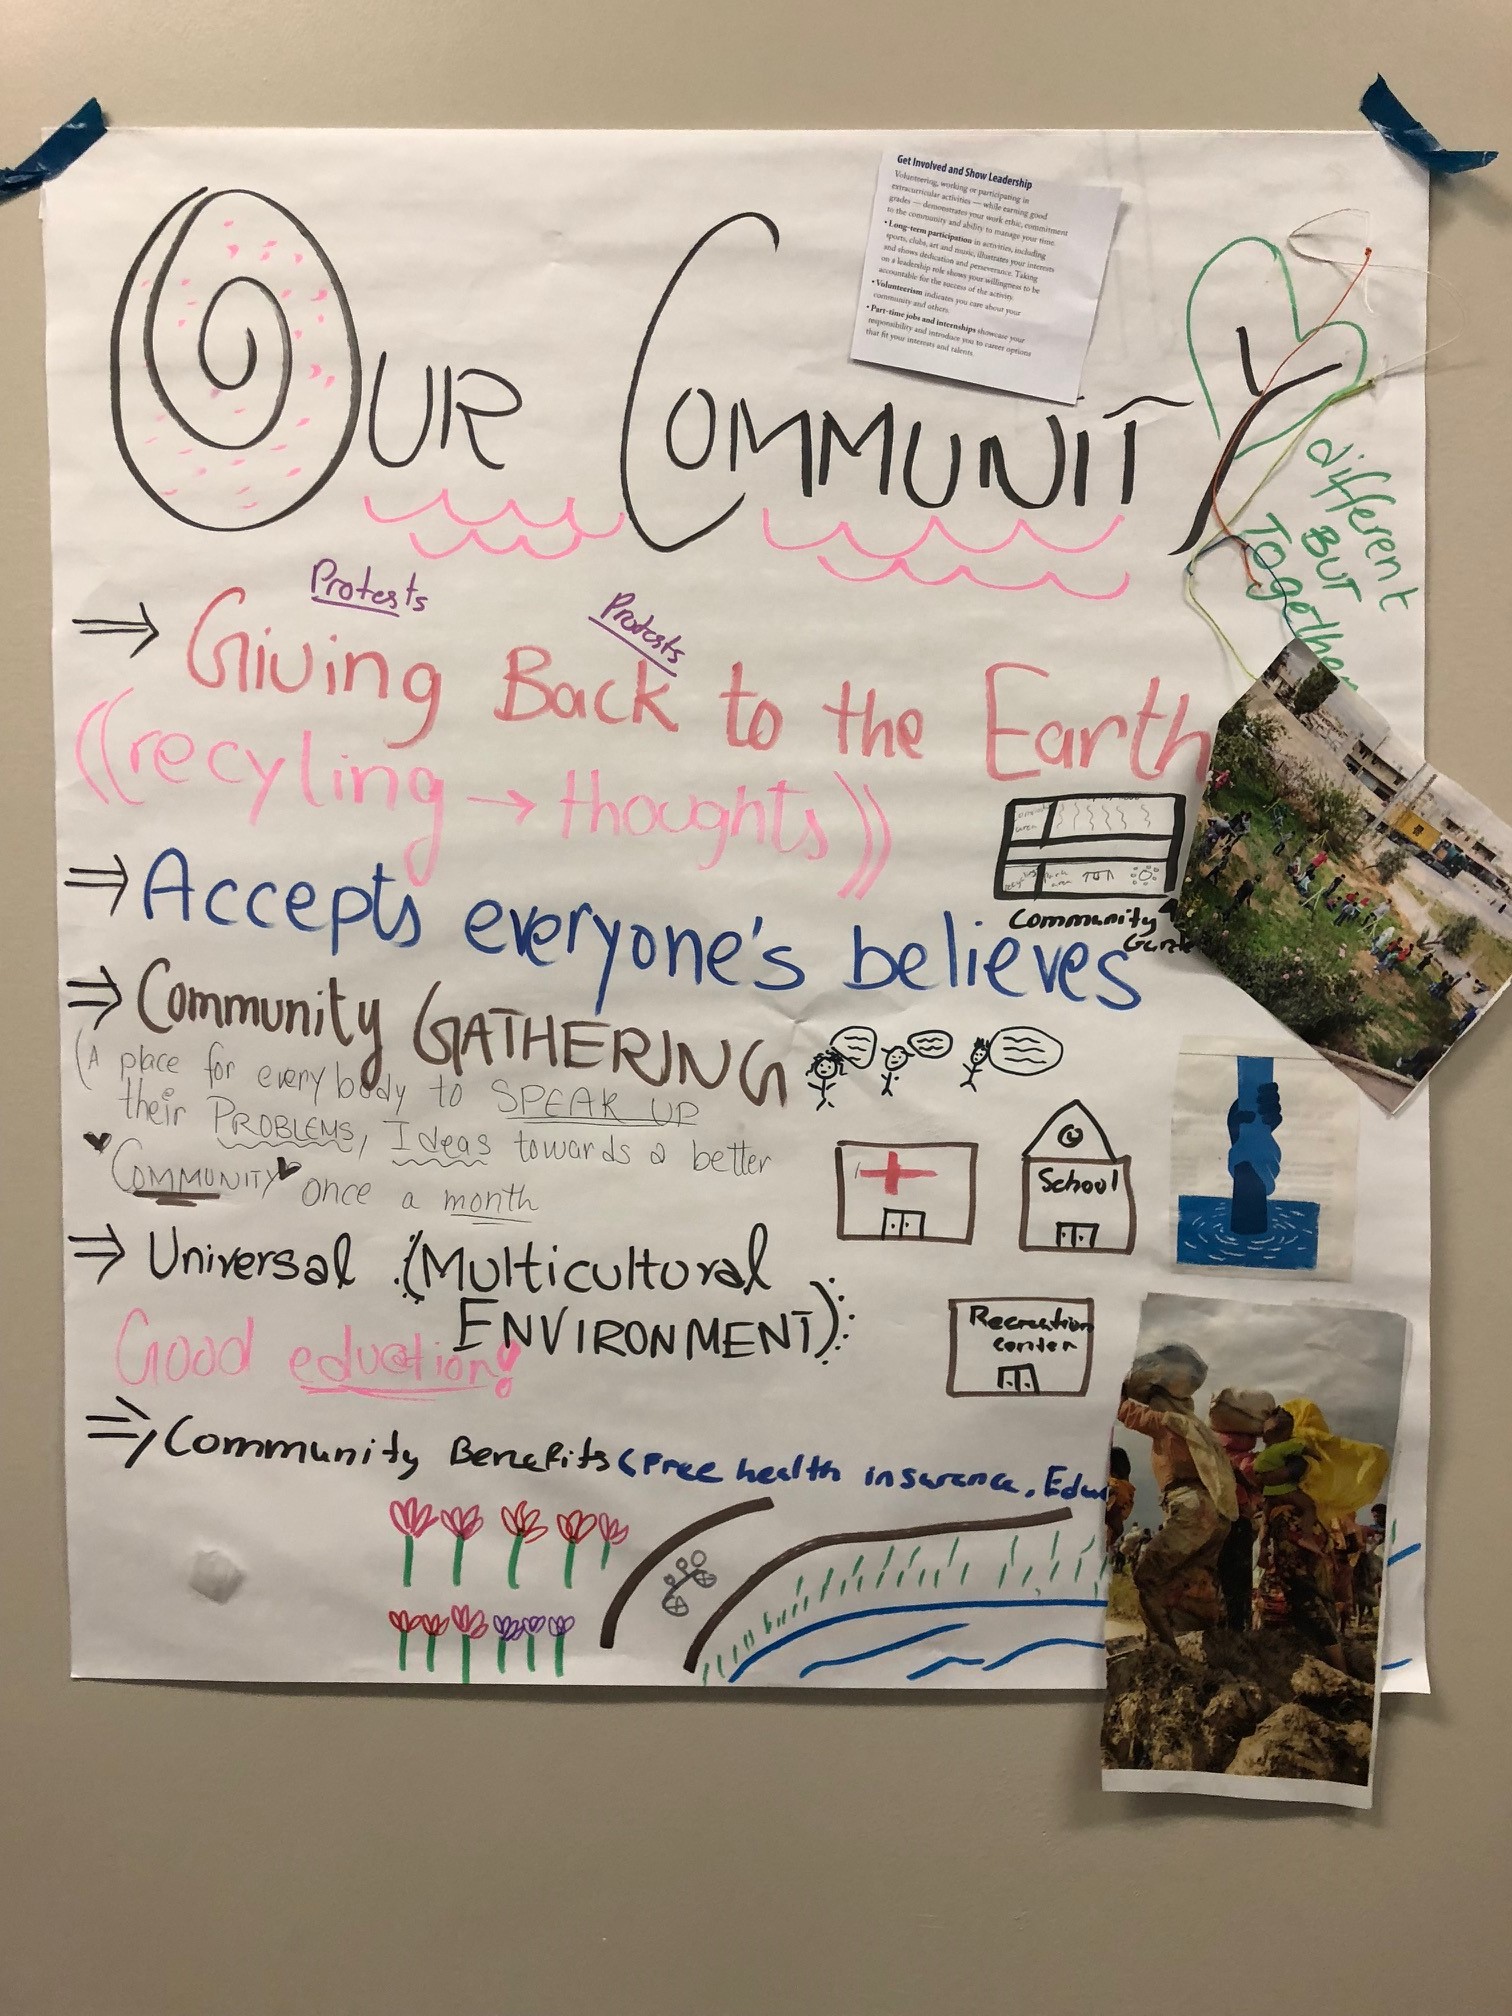 Get Involved and Show Leadership
Volunteering, working or participating in
extracurricular activities — while earning good
grades — demonstrates your work ethic, commitment
to the community and ability to manage your time.
• Long-term participation in activities, including
sports, clubs, art and music, illustrates your interests
and shows dedication and perseverance. Taking
on a leadership role shows your willingness to be
accountable for the success of the activity.
• Volunteerism indicates you care about your
community and others.
• Part-time jobs and internships showcase your
responsibility and introduce you to career options
that fit your interests and talents.
OUR COMMUNITY
different
BUT
Together
Protests
Protests
⇒ Giving Back to the Earth
((recyling → thoughts))
Community
⇒ Accepts everyone's believes
⇒ Community GATHERING
(A place for everybody to SPEAK UP
their PROBLEMS, Ideas towards a better
COMMUNITY once a month
School
⇒ Universal (Multicultural
ENVIRONMENT)
Good education!
Recreation
Conter
⇒ Community Benefits (Free health insurance,